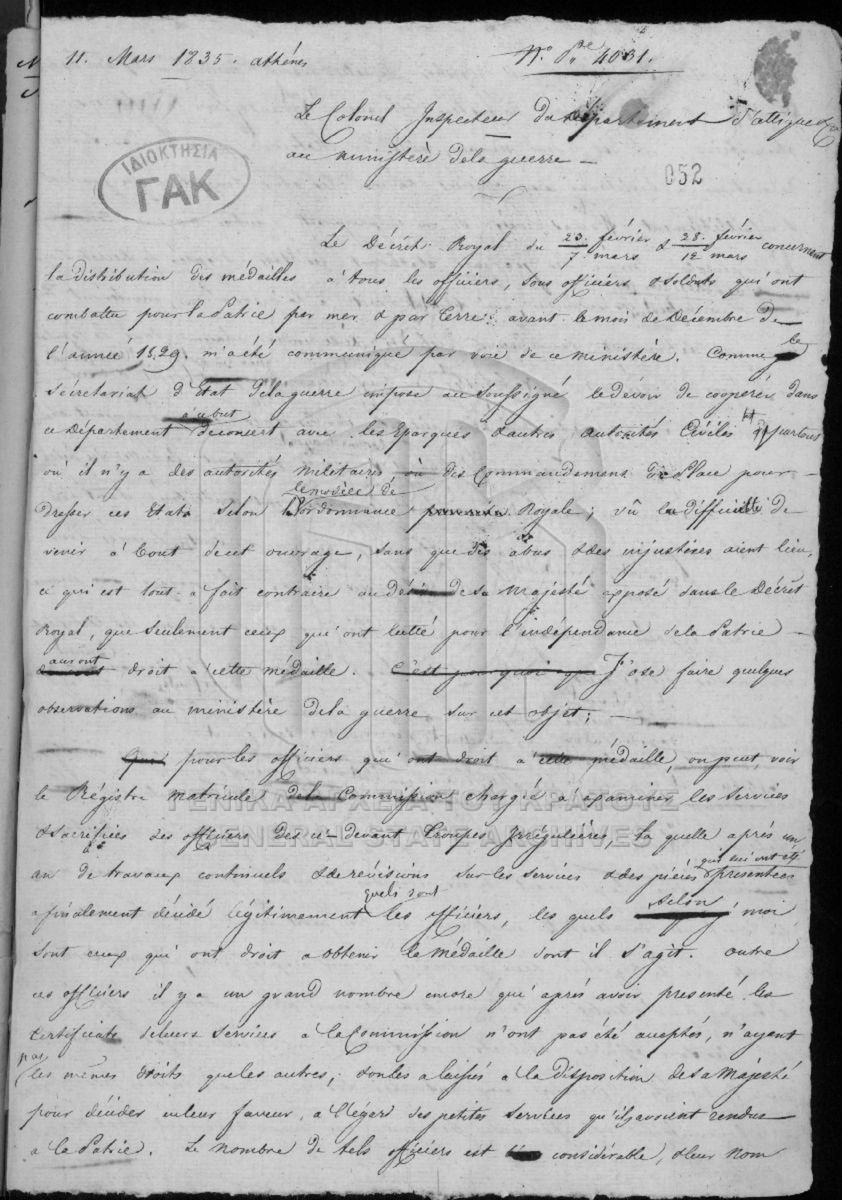 11. Mars 1835. Athénes
No. 4031.
Le Colonel Inspecteur du Département d'Attique &a
au ministère dela guerre —
052
ΙΔΙΟΚΤΗΣΙΑ
ΓΑΚ
Le Décrét Royal du 23. février / 7. mars & 28. février / 12 mars concernent
la distribution des médailles à tous les officiers, sous officiers & soldats qui ont
combattu pour la Patrie par mer & par terre avant le mois de Décembre de
l'année 1829. m'a été communiqué par voie de ce ministère. Comme le
sécretariat d'Etat dela guerre impose au soussigné le dévoir de cooperér dans
à ce but
ce Département deconcert avec les Eparques & autres autorités Civiles & partout
où il n'y a des autorités militaires où des Commandemens de Place pour
le modèle de
dresser ces Etats selon l'ordonnance Royale; vû la difficulté de
venir à bout de cet ouvrage, sans que des abus & des injustices aient lieu,
ce qui est tout-à fait contraire au désir de sa Majesté exposé dans le Décrét
Royal, que seulement ceux qui ont lutté pour l'indépendance de la Patrie
auront droit a cette médaille. C'est pourquoi que J'ose faire quelques
observations au ministère dela guerre sur cet objet; —
Que pour les officiers qui ont droit a cette médaille, on peut voir
le Régistre matricule dela Commission chargé a examiner les services
& sacrifices des officiers des ci-devant troupes Irrégulières, la quelle aprés un
an de travaux continuels & de revisions sur les services & des pièces qui lui ont été presentées
quels sont
a finalement décidé légitimement les officiers, les quels selon moi,
sont ceux qui ont droit a obtenir la médaille dont il s'agit. outre
ces officiers il y a un grand nombre encore qui aprés avoir presenté les
certificats de leurs services a la Commission n'ont pas été acceptés, n'ayant
pas les mêmes droits que les autres; & on les a laissés a la disposition de sa Majesté
pour décider en leur faveur, a l'égard des petits services qu'ils avoient rendus
a la Patrie. Le nombre de tels officiers est considérable, & leur nom
ΓΕΝΙΚΑ ΑΡΧΕΙΑ ΤΟΥ ΚΡΑΤΟΥΣ
GENERAL STATE ARCHIVES